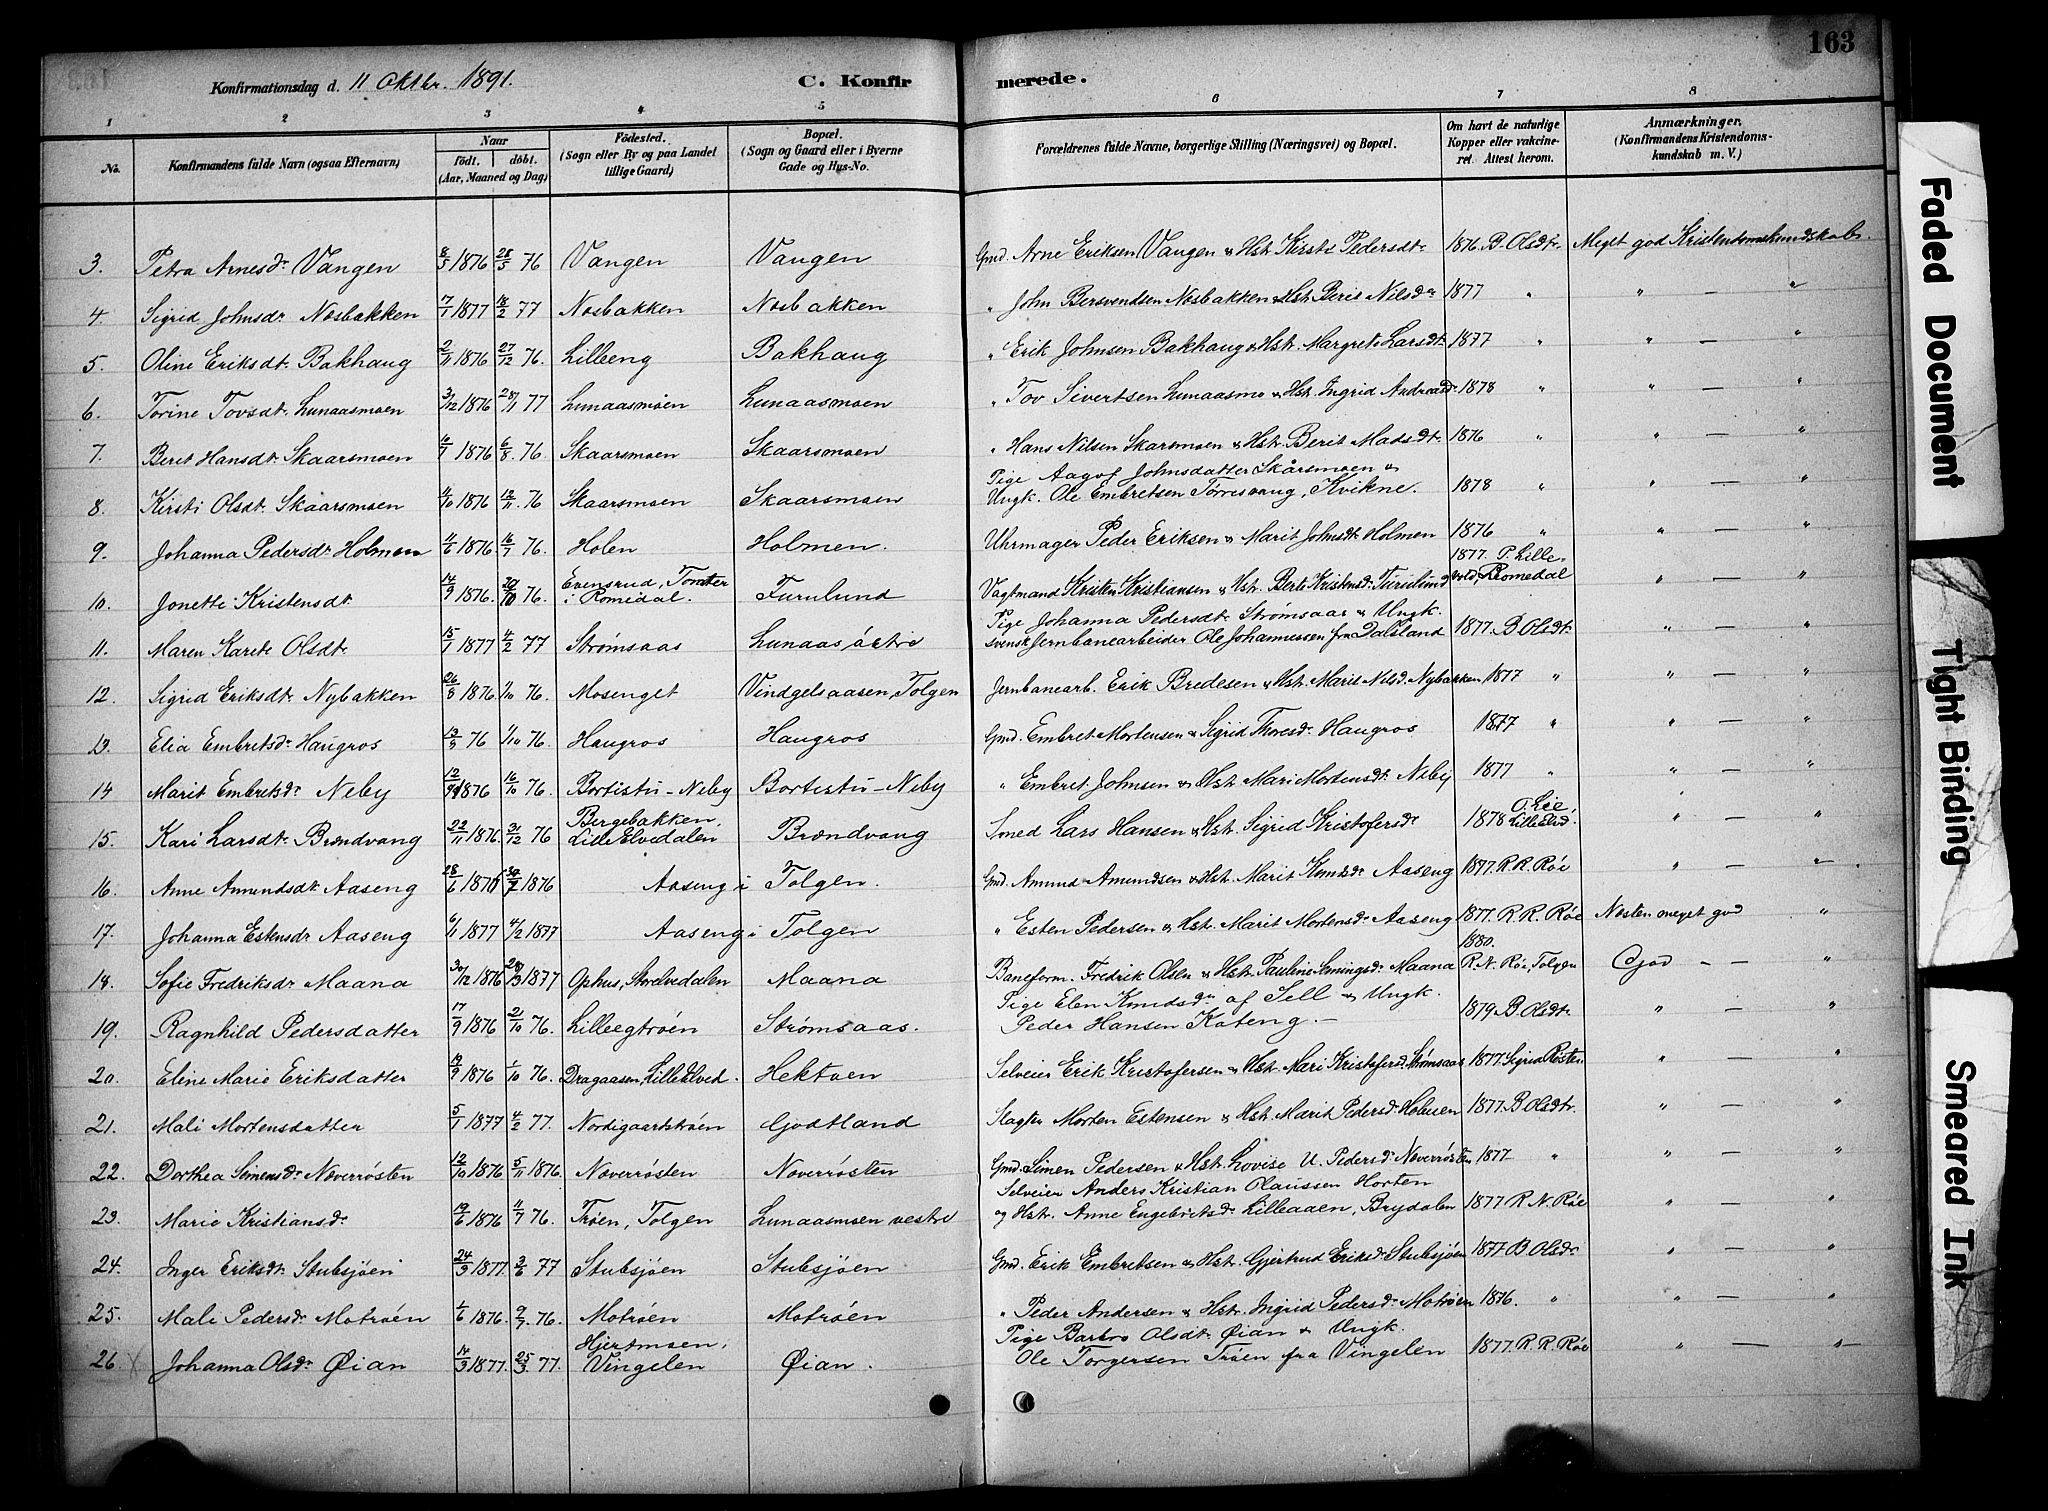 163
Konfirmationsdag d. 11 Oktbr. 1891. C. Konfirmerede.
1 2 3 4 5 6 7 8
No. Konfirmandens fulde Navn (ogsaa Efternavn) Naar Födt. döbt. (Aar, Maaned og Dag) Födested. (Sogn eller By og paa Landet tillige Gaard) Bopæl. (Sogn og Gaard eller i Byerne Gade og Hus-No. Forældrenes fulde Navne, borgerlige Stilling (Næringsvei) og Bopæl. Om havt de naturlige Kopper eller vakcineret. Attest herom. Anmærkninger. (Konfirmandens Kristendomskundskab m. V.)
3. Petra Arnesdr Vangen 8/5 1876 28/5 76 Vangen Vangen Gmd. Arne Eriksen Vangen & Hst. Kirsti Pedersdt. 1876 B. Olsdt. Meget god Kristendomskundskab.
4. Sigrid Johnsdr Nosbakken 7/1 1877 18/2 77 Nosbakken Nosbakken " John Bersvendsen Nosbakken & Hst. Berit Nilsdr 1877 " " — "
5. Oline Eriksdt. Bakhaug 2/11 1876 27/12 76. Lilleeng Bakhaug " Erik Johnsen Bakhaug & Hst. Margrete Larsdt. 1877 " " — "
6. Torine Tovsdt. Lunaasmoen 3/12 1876 28/11 77 Lunaasmoen Lunaasmoen " Tov Sivertsen Lunaasmo & Hst. Ingrid Andreasdr. 1878 " " — "
7. Berit Hansdt. Skaarsmoen /7 1876 6/8. 76. Skaarsmoen Skaarsmoen " Hans Nilsen Skarsmoen & Hst. Berit Madsdt. 1876 " " — "
8. Kirsti Olsdt. Skaarsmoen 11/10 1876 12/11. 76 Skaarsmoen Skaarsmoen Pige Aagot Johnsdatter Skårsmoen &
Ungk. Ole Embretsen Torresvang, Kvikne. 1878 " " — "
9. Johanna Pedersdr Holmen 11/6 1876. 16/7 76. Holen Holmen. Uhrmager Peder Eriksen & Marit Johnsdt. Holmen 1876 " " — "
10. Jonette Kristensdt. 14/9 1876. 20/10 76. Evensrud, Tomter i Romedal. Furulund Vagtmand Kristen Kristiansen & Hst. Berte Kristensdr. Furulund 1877. P. Lillevold, Romedal " — "
11. Maren Karete Olsdt. 15/1 1877 4/2 77 Strømsaas Lunaas östre Pige Johanna Pedersdt. Strømsaas & Ungk.
svensk Jernbanearbeider Ole Johannessen fra Dalsland 1877. B Olsdt. " — "
12. Sigrid Eriksdt. Nybakken 26/8 1876. 1/10 76. Mosenget Vindgelsaasen, Tolgen Jernbanearb. Erik Bredesen & Hst. Marit Nilsd. Nybakken 1877 " " — "
13. Elia Embretsdr Haugros 13/9 76 1/10 76. Haugros Haugros Gmd. Embret Mortensen & Sigrid Thoresdr. Haugros 1877 " " — "
14 Marit Embretsdr Neby 1876 16/10 76. Bortistu-Neby Bortistu-Neby " Embret Johnsen & Hst. Mari Mortensdt. Neby 1877 " " — "
15. Kari Larsdt. Brændvang 22/11 1876. 31/12 76 Bergebakken, Lille Elvedalen Brændvang Soned Lars Hansen & Hst. Sigrid Kristofersdr 1878 O. Lie Lille Elvd. " — "
16. Anne Amundsdt. Aaseng 28/6 1876 30/7 1876 Aaseng i Tolgen. Gmd. Amund Amundsen & Hst. Marit Knutsdr. Aaseng 1877. R. R. Røe " — "
17. Johanna Estensdr Aaseng 6/11 1877 4/2 1877 Aaseng i Tolgen " Esten Pedersen & Hst. Marit Mortensdr. Aaseng 1877. R. R. Røe Nesten meget god "
18. Sofie Fredriksdr Maana 30/12 1876 28/3 1877 Ophus, Storelvedalen Maana Baneform. Fredrik Olsen & Hst. Pauline Semingsdr. Maana 1880. R. N. Røe, Tolgen God — — "
19. Ragnhild Pedersdatter 17/9 1876 21/10 76. Lilleegtrøen Strømsaas. Pige Elen Knudsdr af Sell & Ungk.
Peder Hansen Koteng. — 1879 B. Olsdt. " — "
20. Eline Marie Eriksdatter 19/9 1876 1/10 76. Dragaasen, Lille Elved. Hektoen Selveier Erik Kristofersen & Hst. Mari Kristofersd. Strømsaas 1877. Sigrid Røsten " — "
21. Mali Mortensdatter 5/1 1877 4/2 77. Nordigaardstrøen Godtland Slagter Morten Estensen & Hst. Marit Pedersdr. Hobuen 1877. B Olsdtr. " — "
22. Dorthea Simensdr Noverrøsten 12/10 1876 5/11 1876. Noverrøsten Noverrøsten Gmd. Simen Pedersen & Hst. Lovise U. Pedersdr. Noverrøsten 1877. " " — "
23. Marie Kristiansdr 19/6 1876 11/7 76. Trøen, Tolgen Lunaasmoen vestre Selveier Anders Kristian Olaussen Horten
og Hst. Anne Engebretsdr. Lilleaaen, Brydalen 1877 R. N. Røe " — "
24. Inger Eriksdt. Stubsjøen 24/3 1877. 3/6 77 Stubsjøen Stubsjøen Gmd. Erik Embretsen & Hst. Gjertrud Eriksd. Stubsjøen 1877 B Olsdr. " — "
25. Mali Pedersdr Motrøen 4/6 1876. 9/7. 76. Motrøen Motrøen " Peder Andersen & Hst. Ingrid Pedersdr. Motrøen 1876. " " — "
26 Johanna Olsdr Øian 14/3 1877. 25/3 77. Hjertmoen, Vingelen Øian. Pige Barbro Olsdt. Øian & Ungk.
Ole Torgersen Trøen fra Vingelen 1877. R. R. Røe " — "
Faded Document
Tight Binding
Smeared Ink